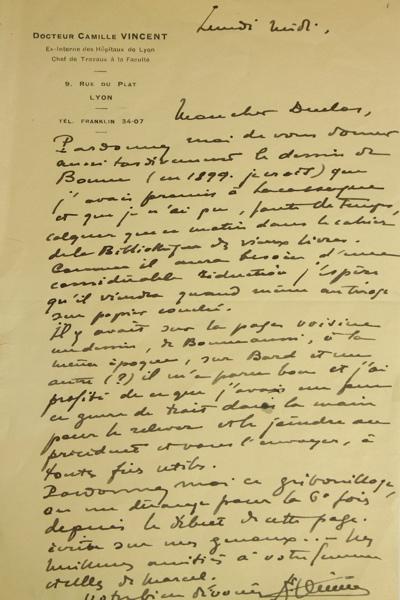 Lundi midi.
DOCTEUR CAMILLE VINCENT
Ex-Interne des Hôpitaux de Lyon
Chef de Travaux à la Faculté
9, RUE DU PLAT
LYON
TÉL. FRANKLIN 34-07
Mon cher Duclos,
Pardonnez moi de vous donner
aussi tardivement le dessin de
Bonne (en 1899. je crois) que
j'avais promis à Lacassagne
et que je n'ai pu, faute de temps,
calquer que ce matin dans le cahier
de la Bibliothèque des vieux livres.
Comme il aura besoin d'une
considérable réduction j'espère
qu'il viendra quand même au tirage
sur papier couché.
Il y avait sur la page voisine
un dessin, de Bonne aussi, à la
même époque, sur Bard et un
autre (?) il m'a paru bon et j'ai
profité de ce que j'avais un peu
ce genre de trait dans la main
pour le relever et le joindre au
précédent et vous l'envoyer, à
toutes fins utiles.
Pardonnez moi ce gribouillage,
on me dérange pour la 6e fois
depuis le début de cette page.
écrite sur mes genoux... Mes
meilleures amitiés à votre femme
et celles de Marcel.
Votre bien dévoué